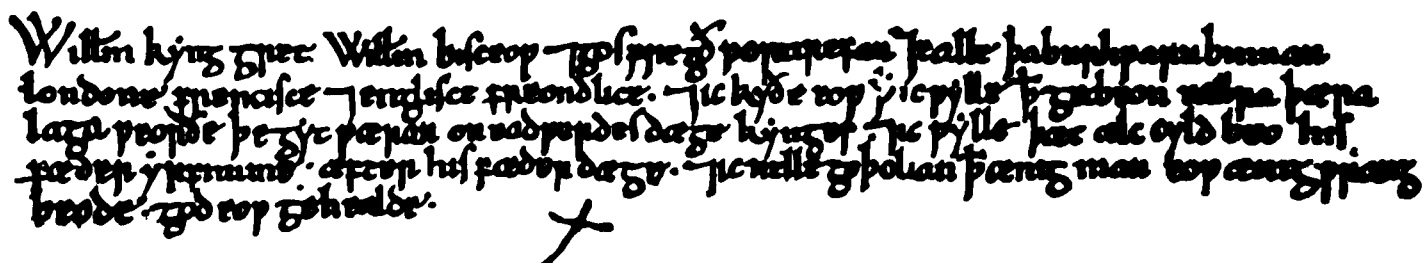 Willm kyng gret Willm bisceop ⁊ gosfregð portirefan ⁊ ealle þa burhwaru binnan
londone frencisce ⁊ englisce freondlice. ⁊ ic kyðe eow ꝥ ic wylle ꝥ get beon eallra þæra
laga weorðe þe gyt wæran on eadwerdes dæge kynges. ⁊ ic wylle þæt ælc cyld beo his
fæder yrfnume. æfter his fæder dæge. ⁊ ic nelle geþolian ꝥ ænig man eow ænig wrang
beode. god eow gehealde.